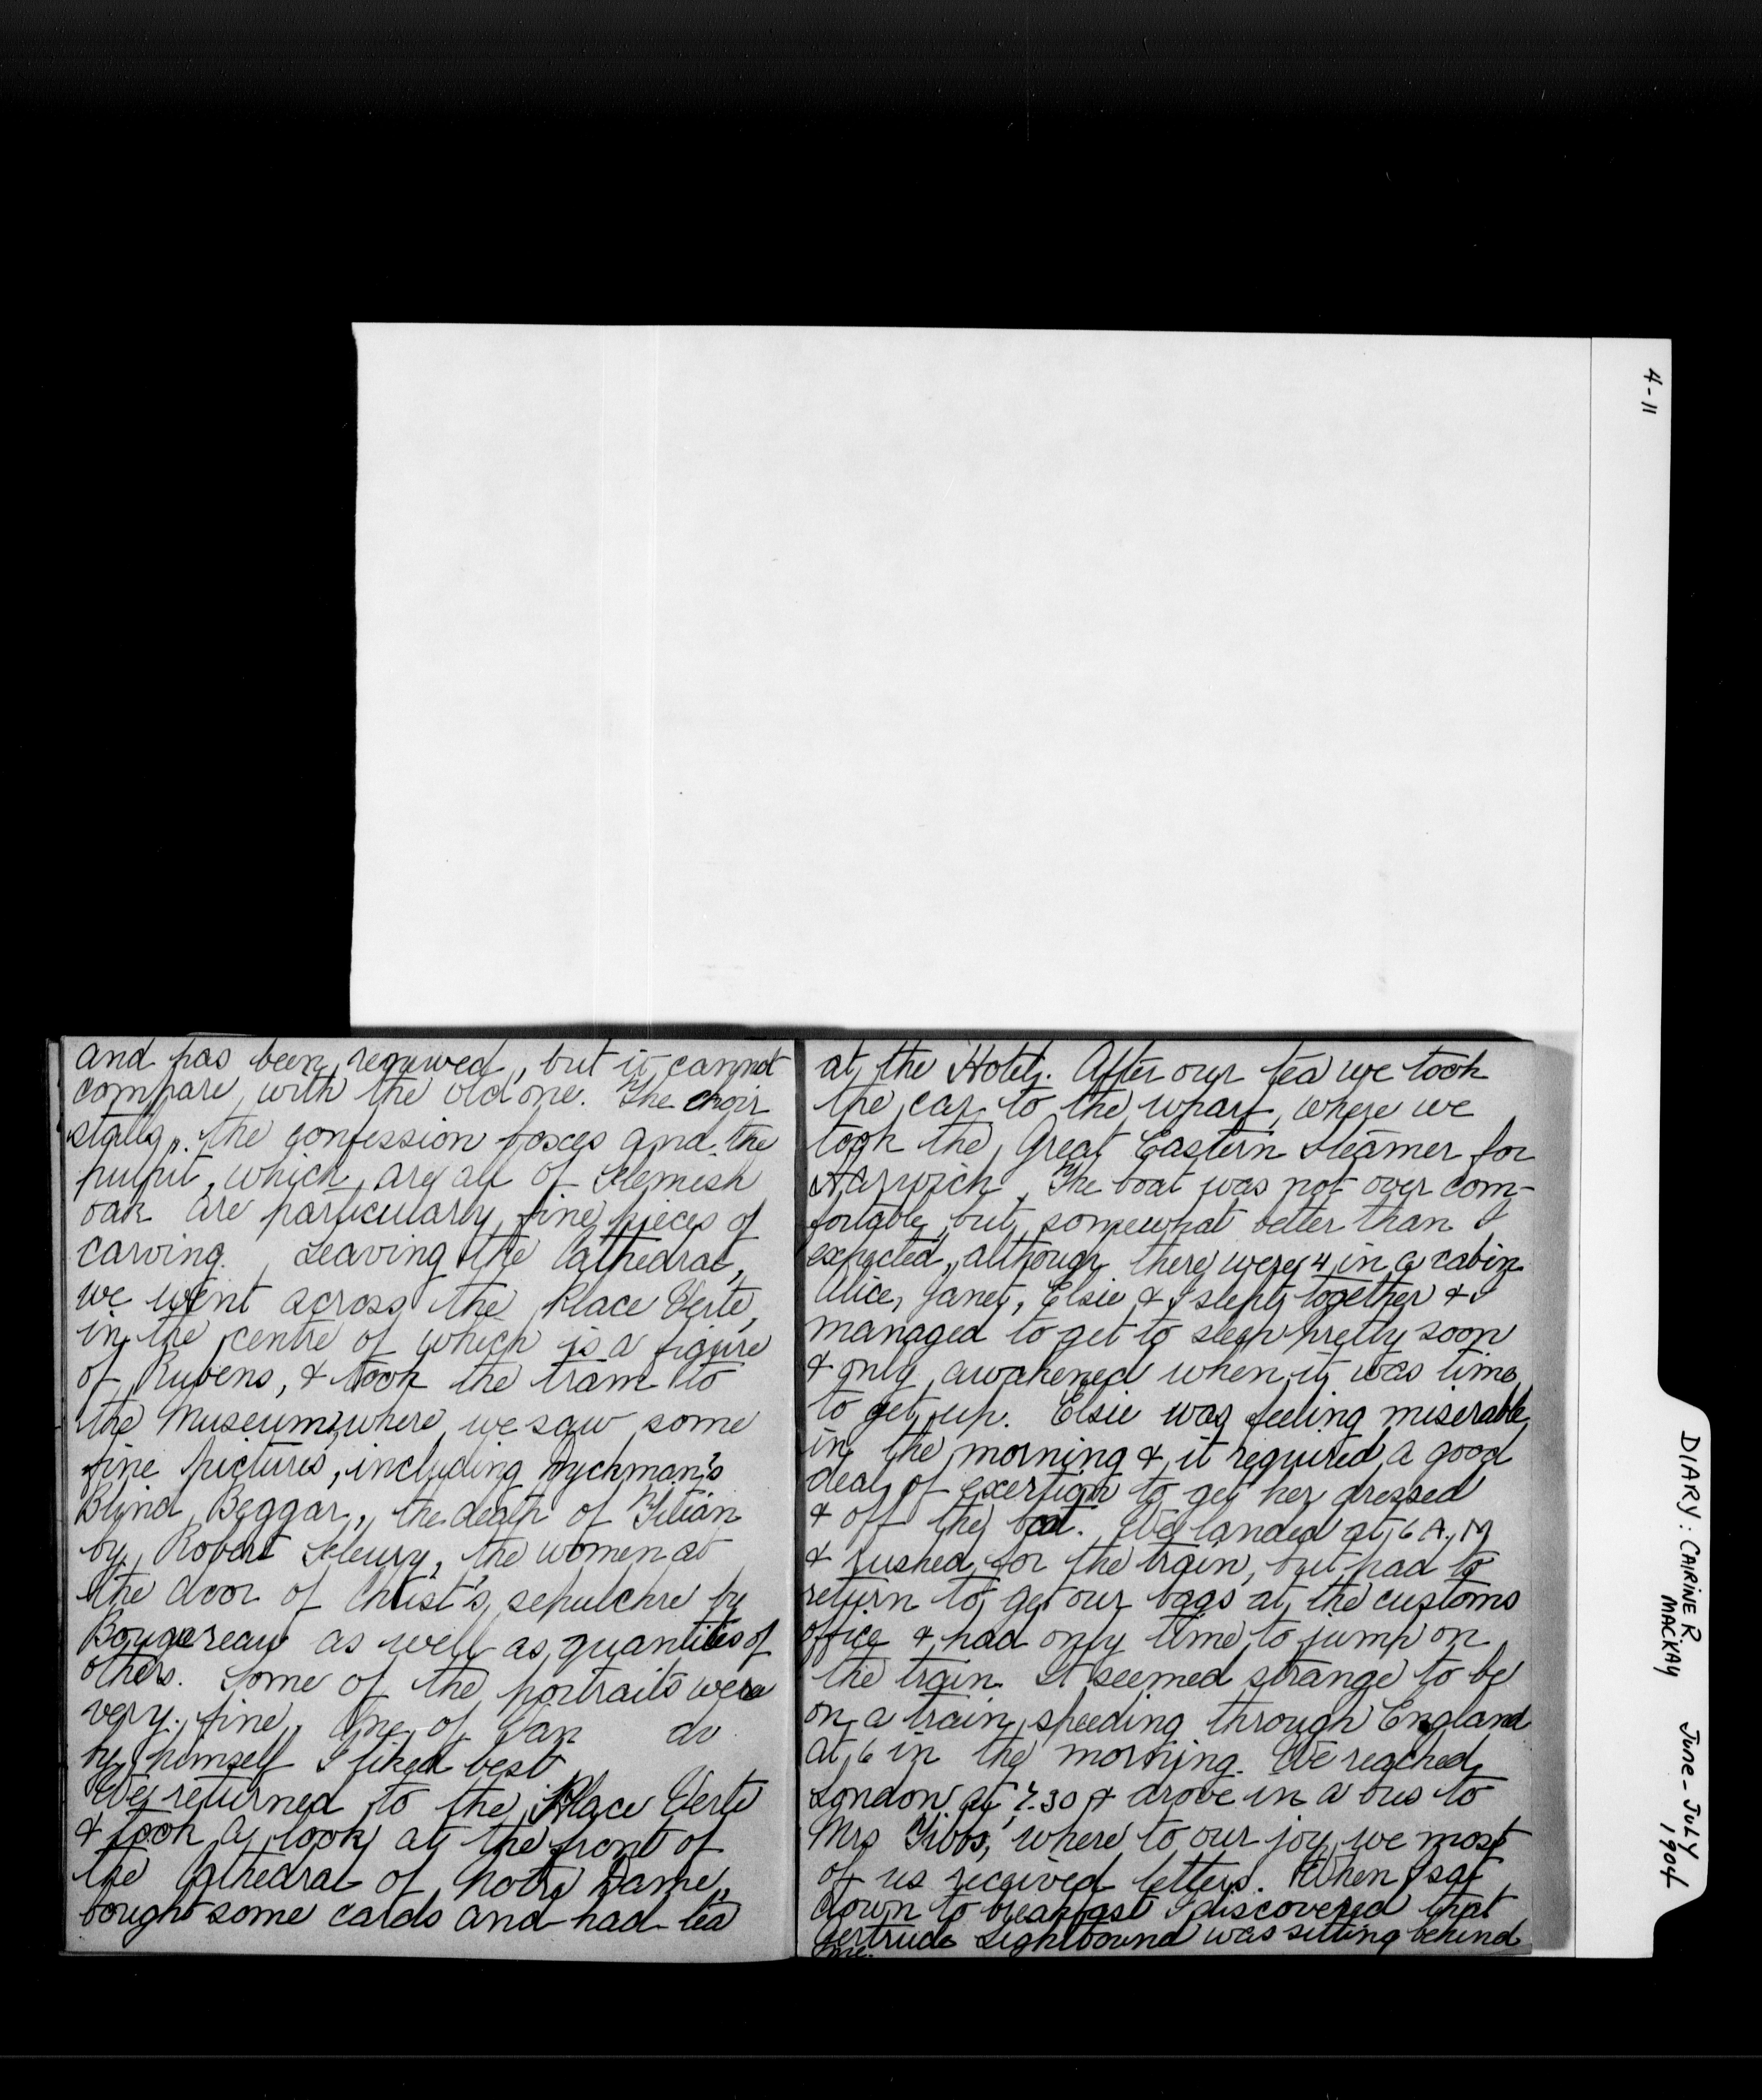 and has been renewed, but it cannot
compare with the old one. The choir
stalls, the confession boxes and the
pulpit, which are all of Flemish
oak are particularly fine pieces of
carving. Leaving the Cathedral,
we went across the Place Verte,
in the centre of which is a figure
of Rubens, & took the tram to
the Museum, where we saw some
fine pictures, including Dyckman's
Blind Beggar, the death of Titian
by Robert Fleury, the women at
the door of Christ's sepulchre by
Bouguereau as well as quantities of
others. Some of the portraits were
very fine. One of Van
by himself I liked best
We returned to the Place Verte
& took a look at the front of
the Cathedral of Notre Dame,
bought some cards and had tea
at the Hotel. After our tea we took
the car to the wharf, where we
took the Great Eastern Steamer for
Harwich. The boat was not over com-
fortable, but somewhat better than I
expected, although there were 4 in a cabin
Alice, Janet, Elsie & I slept together & I
managed to get to sleep pretty soon
& only awakened when it was time
to get up. Elsie was feeling miserable
in the morning & it required a good
deal of exertion to get her dressed
& off the boat. We landed at 6 A.M
& rushed for the train, but had to
return to get our bags at the customs
office & had only time to jump on
the train. It seemed strange to be
on a train speeding through England
at 6 in the morning. We reached
London at 7.30 & drove in a bus to
Mrs Tibbs', where to our joy we most
of us received letters. When I sat
down to breakfast I discovered that
Gertrude Lightbound was sitting behind
me.
4-11
DIARY: CAIRINE R. MACKAY
JUNE-JULY 1904